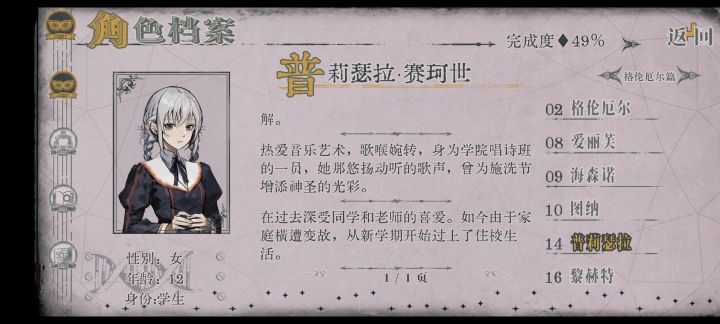 角色档案
完成度◆49%
返回
普莉瑟拉·赛珂世
格伦厄尔篇
解。
热爱音乐艺术，歌喉婉转，身为学院唱诗班
的一员，她那悠扬动听的歌声，曾为施洗节
增添神圣的光彩。
在过去深受同学和老师的喜爱。如今由于家
庭横遭变故，从新学期开始过上了住校生
活。
1/1页
性别：女
年龄：12
身份:学生
02 格伦厄尔
08 爱丽芙
09 海森诺
10 图纳
14 普莉瑟拉
16 黎赫特